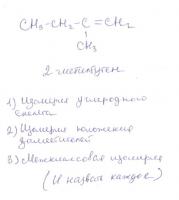 CH₃-CH₂-C=CH₂
CH₃
2 метилбутен
1) Изомерия углеродного
скелета
2) Изомерия положения
заместителей
3) Межклассовая изомерия
(И назвать каждое)